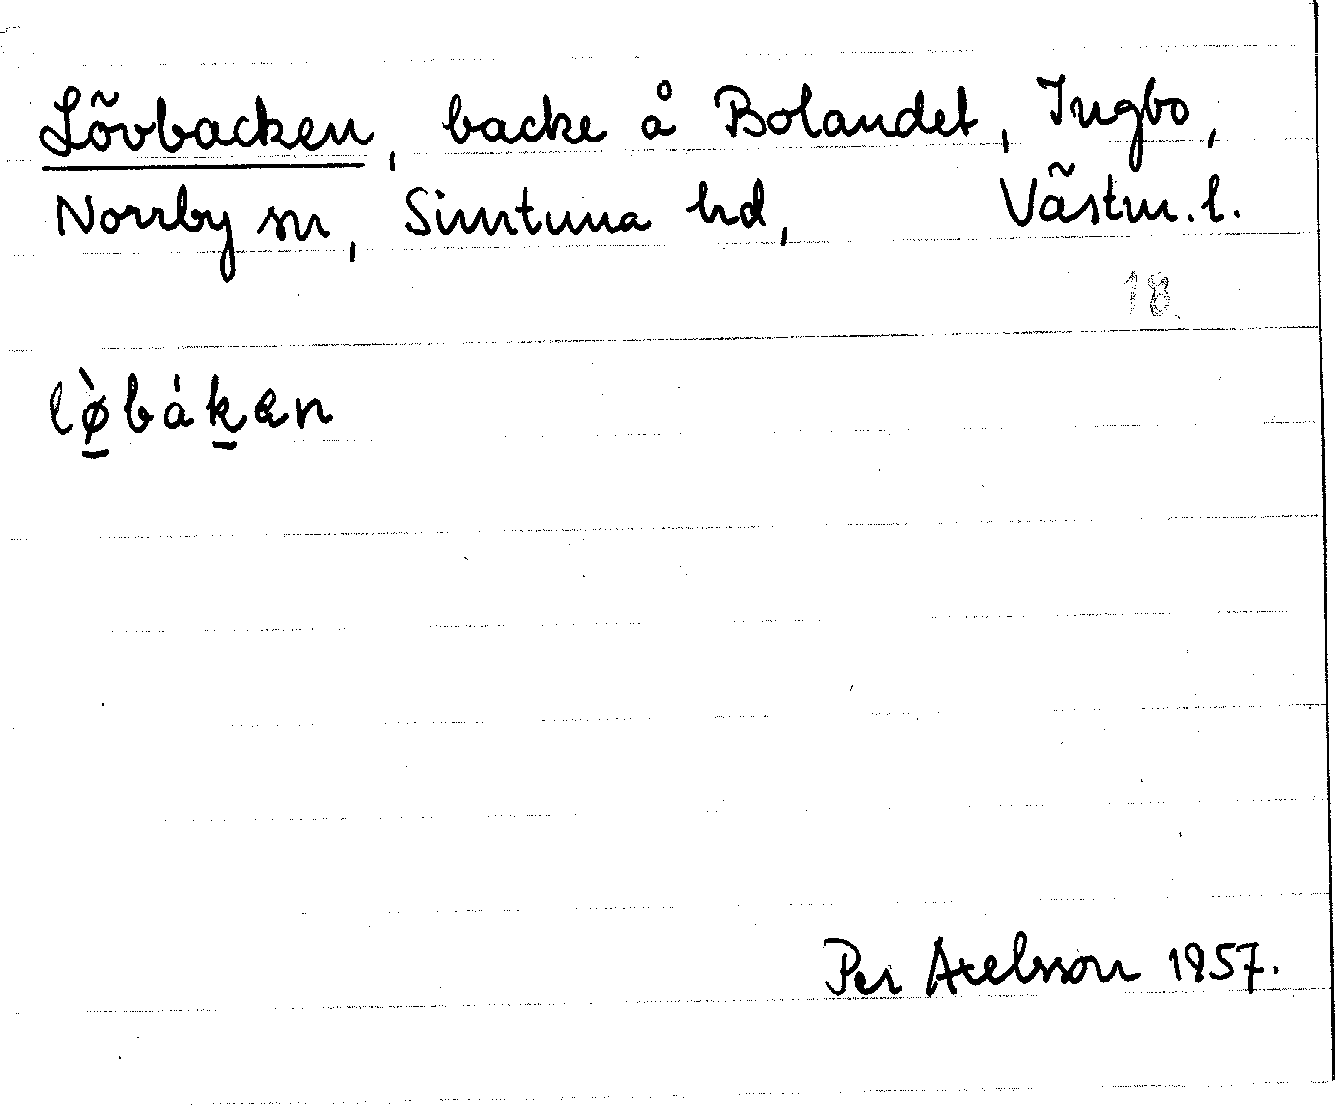 Lövbacken, backe å Bolandet, Ingbo,
Norrby sn, Simtuna hd, Västm. l.
18
lø̀bákan
Per Axelsson 1957.